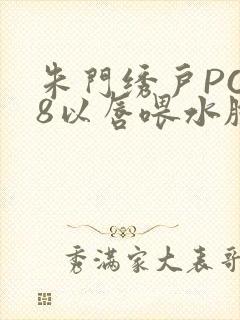 朱門绣戸PO
8以唇喂水
秀满家大表哥